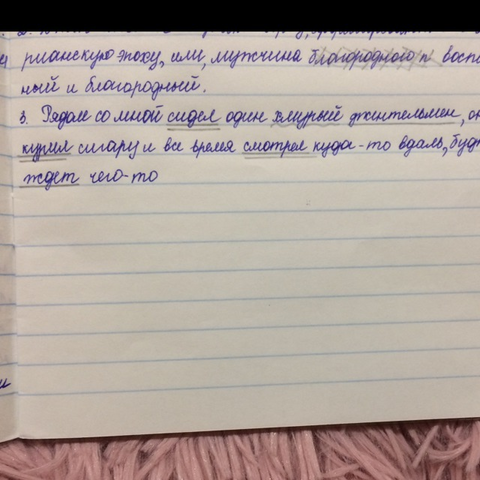 рианскую эпоху, или, мужчина благородного
ный и благородный.
3. Рядом со мной сидел один хмурый джентельмен, он
курил сигару и все время смотрел куда-то вдаль, буд
ждет чего-то